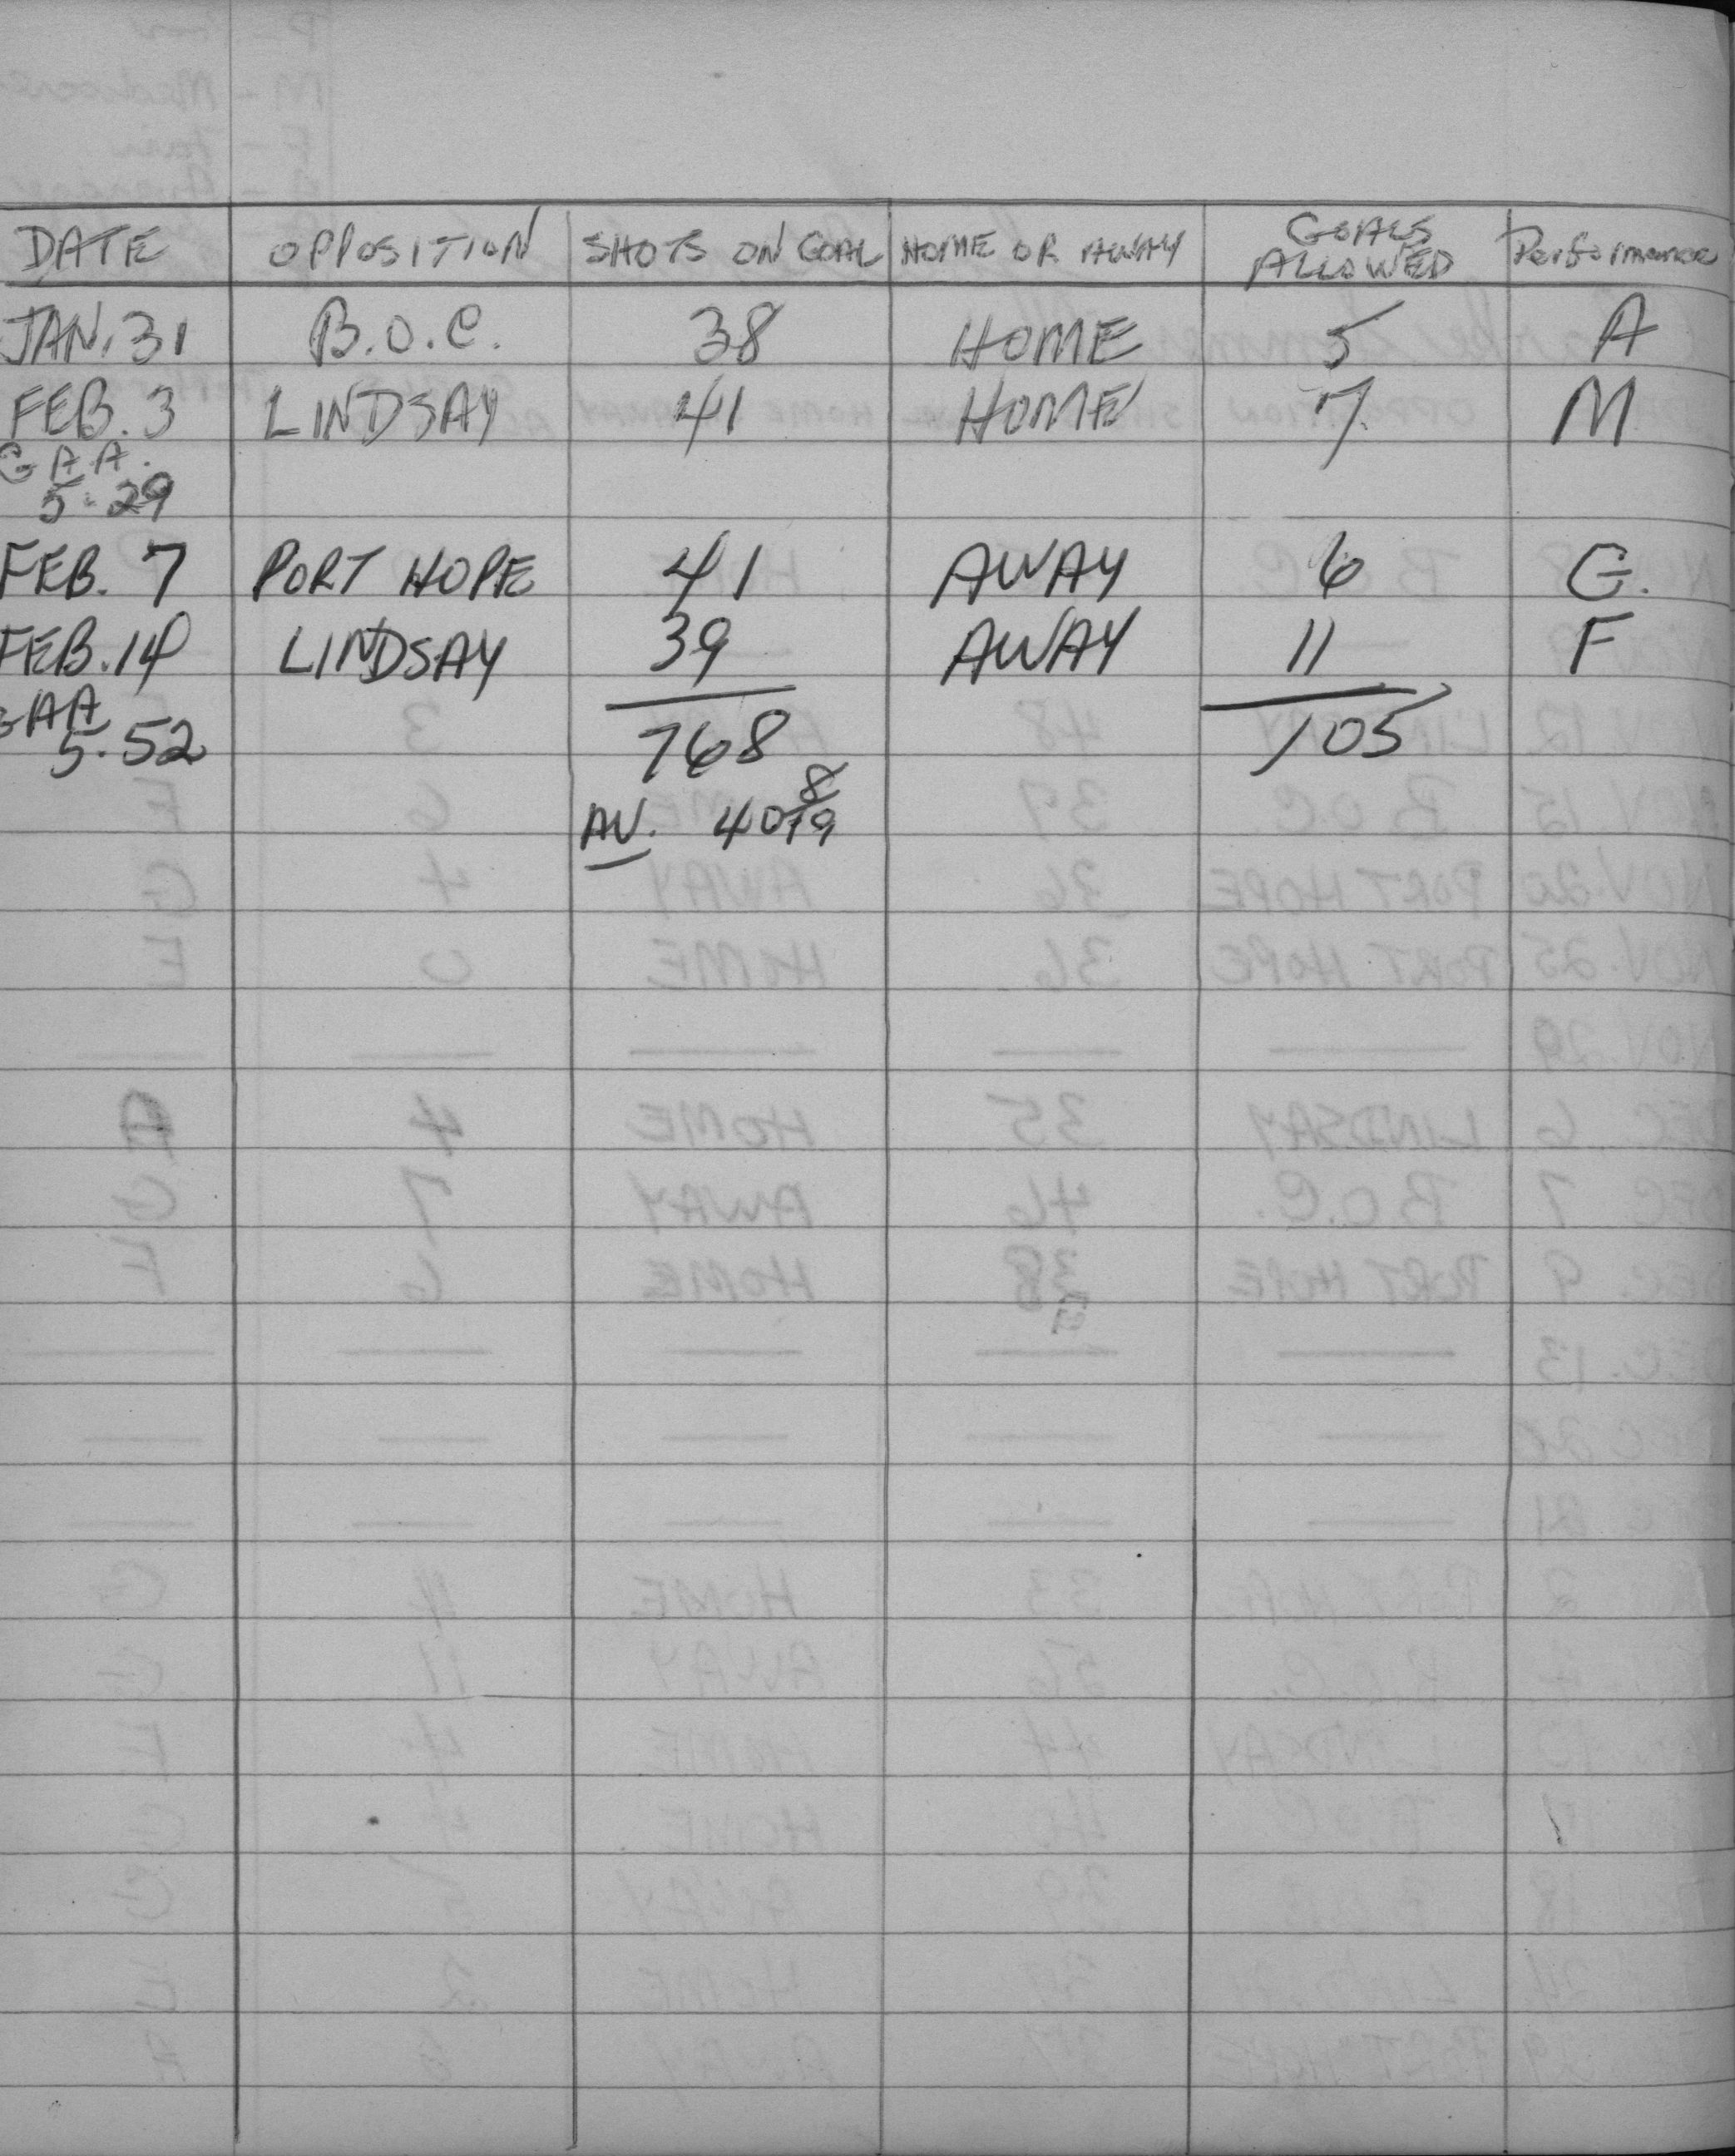 DATE OPPOSITION SHOTS ON GOAL HOME OR AWAY GOALS ALLOWED Performance
JAN. 31 B.O.C. 38 HOME 5 A
FEB. 3 LINDSAY 41 HOME 7 M
GAA.
5.29
FEB. 7 PORT HOPE 41 AWAY 6 G.
FEB. 14 LINDSAY 39 AWAY 11 F
GAA
5.52 768 105
AV. 40 8/19